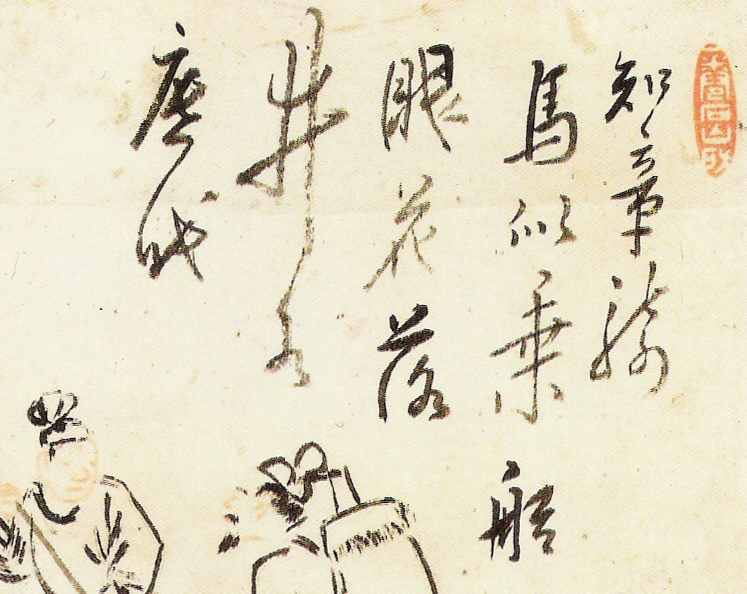 知章騎
馬似乗船
眼花落
井水
底眠